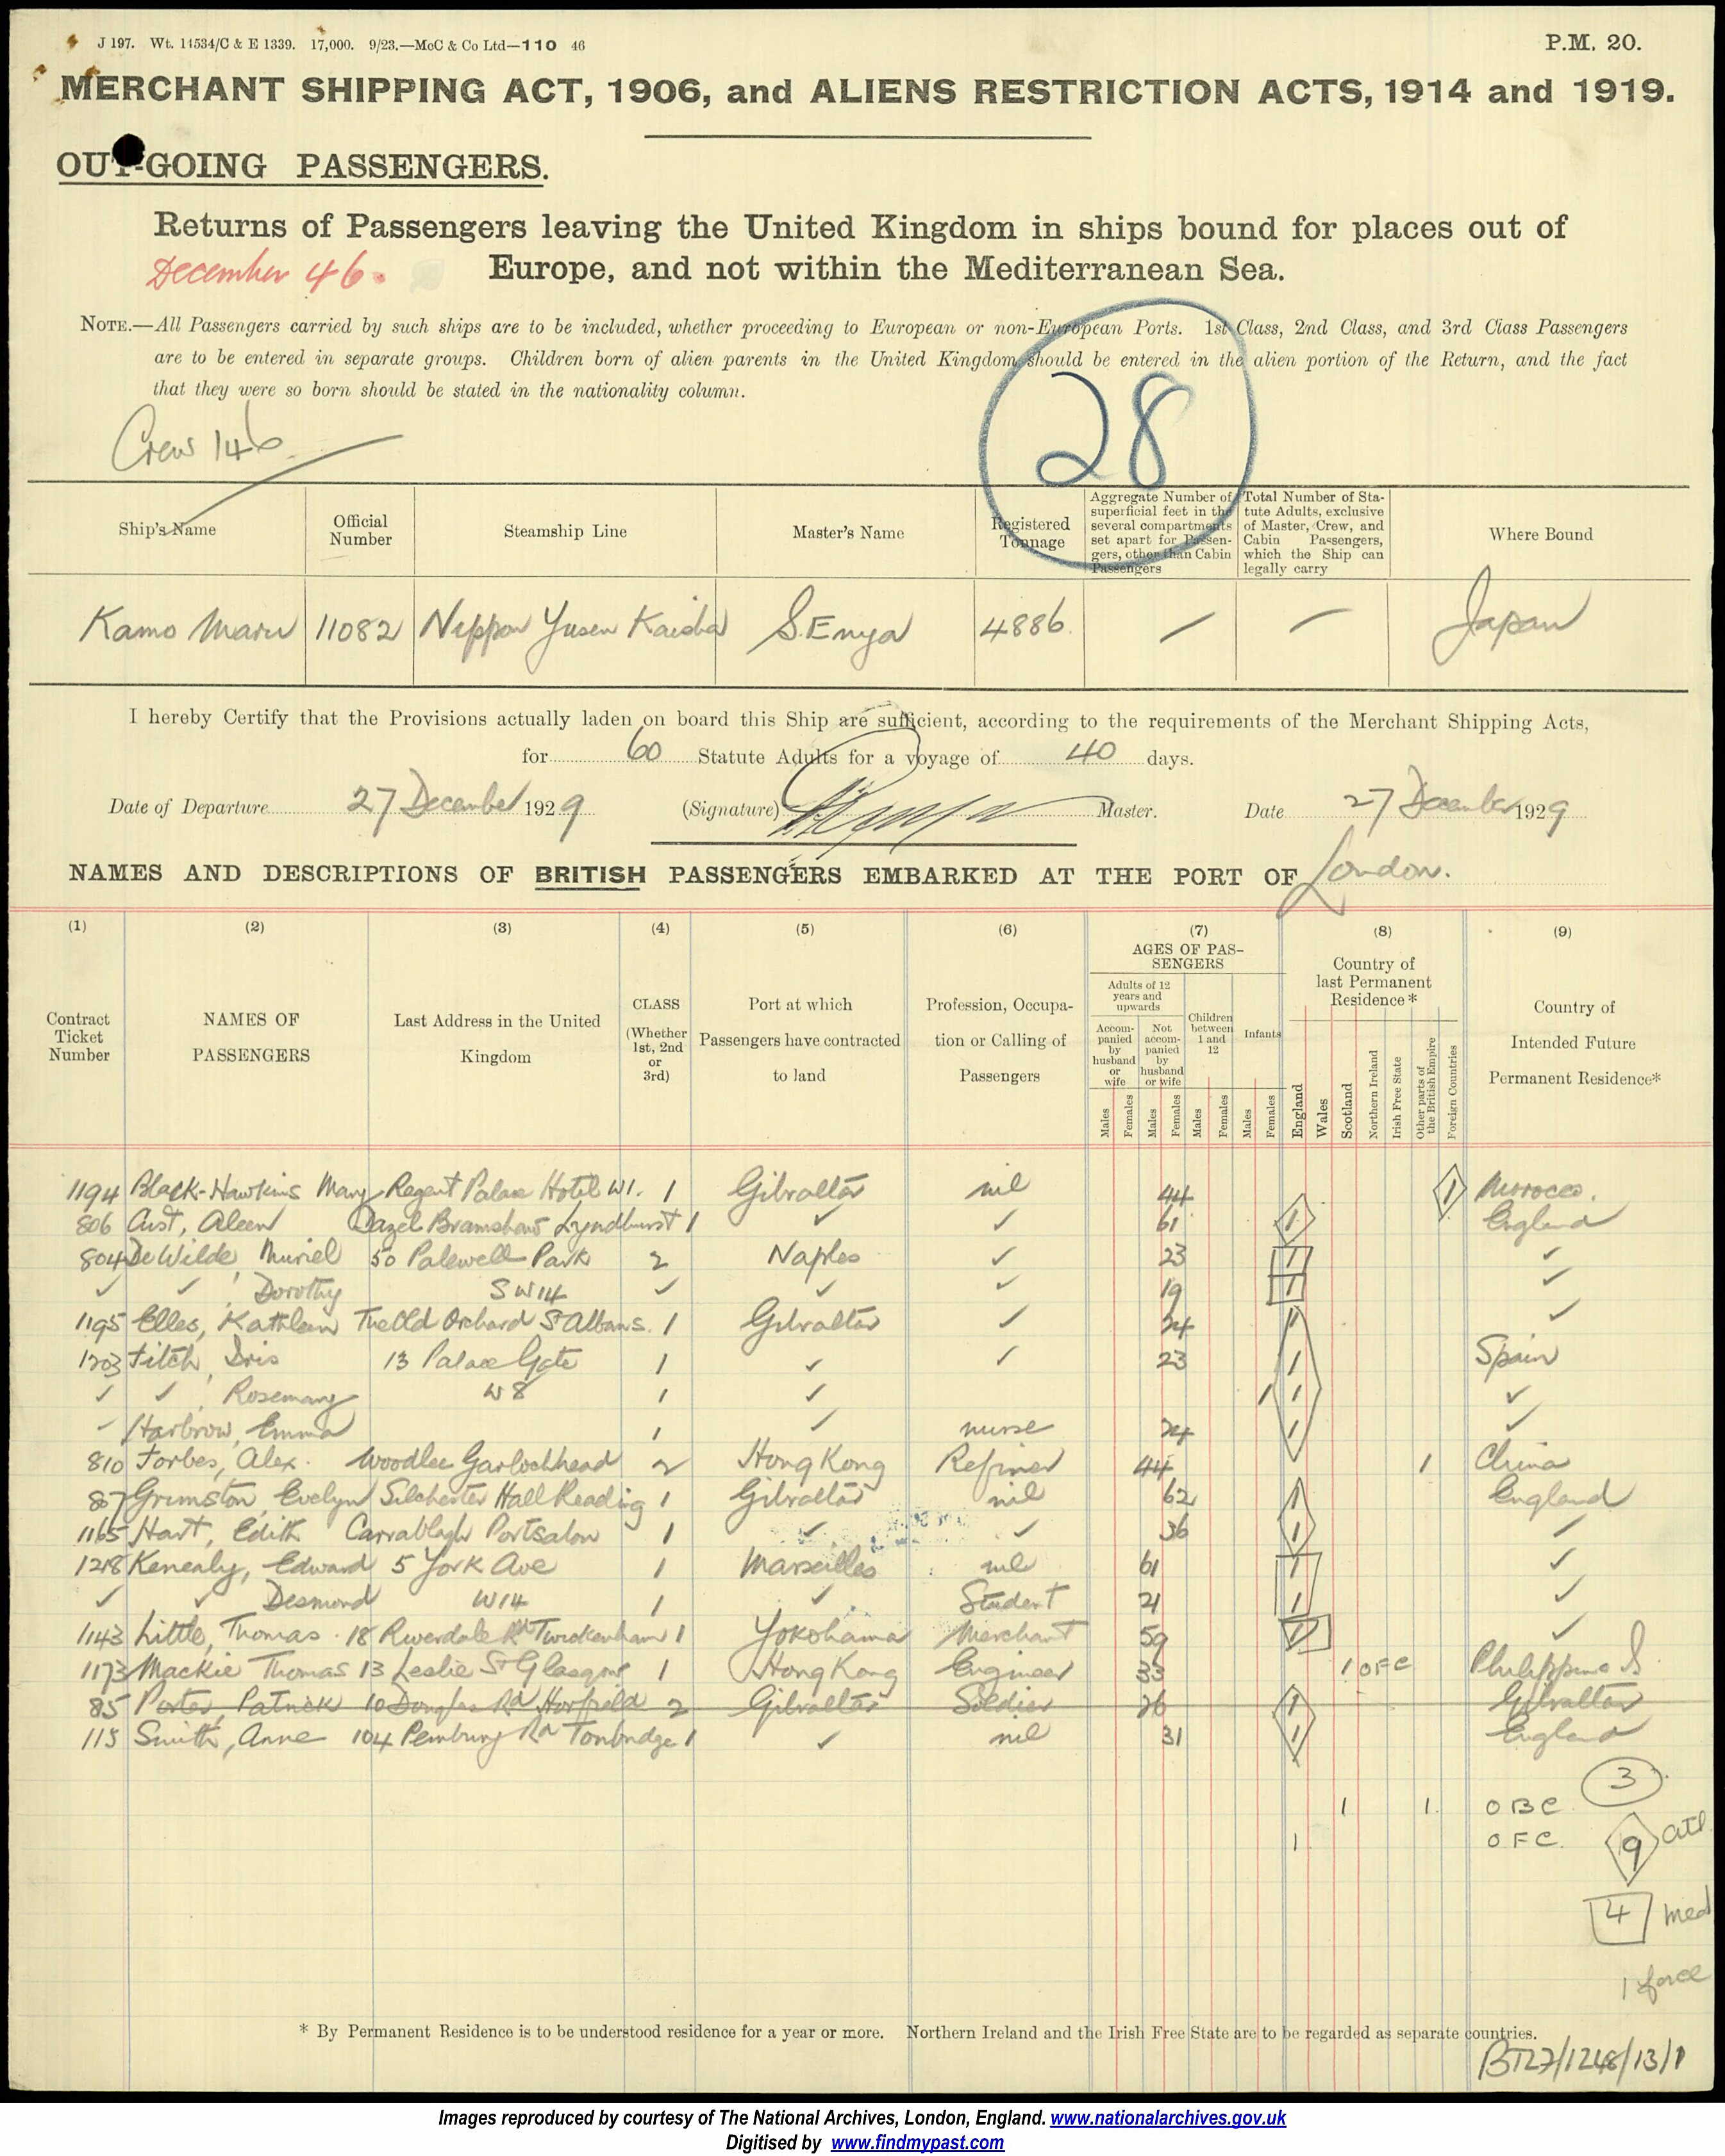 J 197. Wt. 11534/C & E 1339. 17,000. 9/23.—McC & Co Ltd—110 46
P.M. 20.
MERCHANT SHIPPING ACT, 1906, and ALIENS RESTRICTION ACTS, 1914 and 1919.
OUT-GOING PASSENGERS.
Returns of Passengers leaving the United Kingdom in ships bound for places out of
December 46. Europe, and not within the Mediterranean Sea.
NOTE.—All Passengers carried by such ships are to be included, whether proceeding to European or non-European Ports. 1st Class, 2nd Class, and 3rd Class Passengers
are to be entered in separate groups. Children born of alien parents in the United Kingdom should be entered in the alien portion of the Return, and the fact
that they were so born should be stated in the nationality column.
28
Crew 146
Ship's Name
Official Number
Steamship Line
Master's Name
Registered Tonnage
Aggregate Number of superficial feet in the several compartments set apart for Passengers, other than Cabin Passengers
Total Number of Statute Adults, exclusive of Master, Crew, and Cabin Passengers, which the Ship can legally carry
Where Bound
Kamo Maru 11082 Nippon Yusen Kaisha S. Enya 4886 Japan
I hereby Certify that the Provisions actually laden on board this Ship are sufficient, according to the requirements of the Merchant Shipping Acts,
for 60 Statute Adults for a voyage of 40 days.
Date of Departure 27 December 1929 (Signature) Master. Date 27 December 1929
NAMES AND DESCRIPTIONS OF BRITISH PASSENGERS EMBARKED AT THE PORT OF London.
(1) (2) (3) (4) (5) (6) (7) (8) (9)
Contract Ticket Number
NAMES OF PASSENGERS
Last Address in the United Kingdom
CLASS (Whether 1st, 2nd or 3rd)
Port at which Passengers have contracted to land
Profession, Occupation or Calling of Passengers
AGES OF PASSENGERS
Adults of 12 years and upwards
Accompanied by husband or wife
Not accompanied by husband or wife
Children between 1 and 12
Infants
Males Females Males Females Males Females Males Females
Country of last Permanent Residence *
England Wales Scotland Northern Ireland Irish Free State Other parts of the British Empire Foreign Countries
Country of Intended Future Permanent Residence*
1194 Black-Hawkins Mary Regent Palace Hotel W1. 1 Gibraltar nil 44 1 Morocco.
806 Cust, Aleen Bramshaw Lyndhurst 1 ✓ ✓ 61 1 England
804 De Wilde, Muriel 50 Palewell Park 2 Naples ✓ 23 1 ✓
✓ ✓, Dorothy SW14 ✓ ✓ ✓ 19 1 ✓
1195 Elles, Kathleen The Old Orchard St Albans. 1 Gibraltar ✓ 24 1 ✓
1203 Fitch, Iris 13 Palace Gate 1 ✓ ✓ 23 1 Spain
✓ ✓, Rosemary W8 1 ✓ 1 1 ✓
✓ Harbrow, Emma 1 ✓ nurse 24 1 ✓
810 Forbes, Alex. Woodlee Garlochhead 2 Hong Kong Refiner 44 1 China
87 Grimston, Evelyn Silchester Hall Reading 1 Gibraltar nil 62 1 England
1165 Hart, Edith Carrablagh Portsalon 1 ✓ ✓ 36 1 ✓
1218 Kenealy, Edward 5 York Ave 1 Marseilles nil 61 1 ✓
✓ ✓ Desmond W14 1 ✓ Student 21 1 ✓
1143 Little, Thomas. 18 Riverdale Rd Twickenham 1 Yokohama Merchant 59 1 ✓
1173 Mackie Thomas 13 Leslie St Glasgow 1 Hong Kong Engineer 33 1 OFC Philippine I
85 Porter, Patrick 10 Douglas Rd Horfield 2 Gibraltar Soldier 26 1 Gibraltar
115 Smith, Anne 104 Pembury Rd Tonbridge 1 ✓ nil 31 1 England
3
1 1. OBC
1 OFC. 9 atl
4 med
1 force
* By Permanent Residence is to be understood residence for a year or more. Northern Ireland and the Irish Free State are to be regarded as separate countries.
BT27/1248/13/1
Images reproduced by courtesy of The National Archives, London, England. www.nationalarchives.gov.uk
Digitised by www.findmypast.com